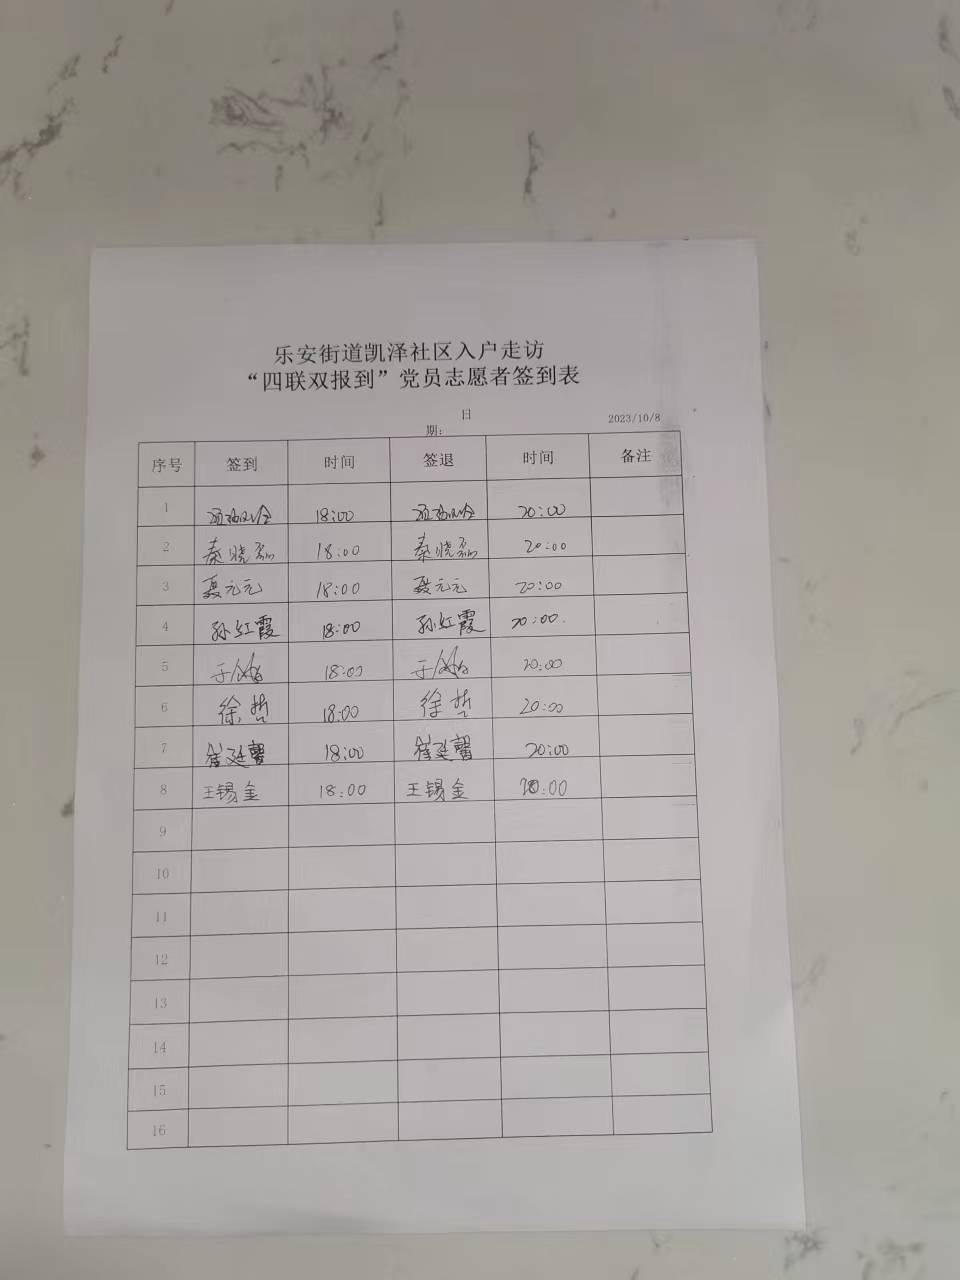 乐安街道凯泽社区入户走访
“四联双报到”党员志愿者签到表
日期： 2023/10/8
序号 签到 时间 签退 时间 备注
1 18:00 20:00
2 秦晓磊 18:00 秦晓磊 20:00
3 聂元元 18:00 聂元元 20:00
4 孙红霞 18:00 孙红霞 20:00.
5 于 18:00 于 20:00
6 徐哲 18:00 徐哲 20:00
7 崔延馨 18:00 崔延馨 20:00
8 王锡金 18:00 王锡金 20:00
9
10
11
12
13
14
15
16